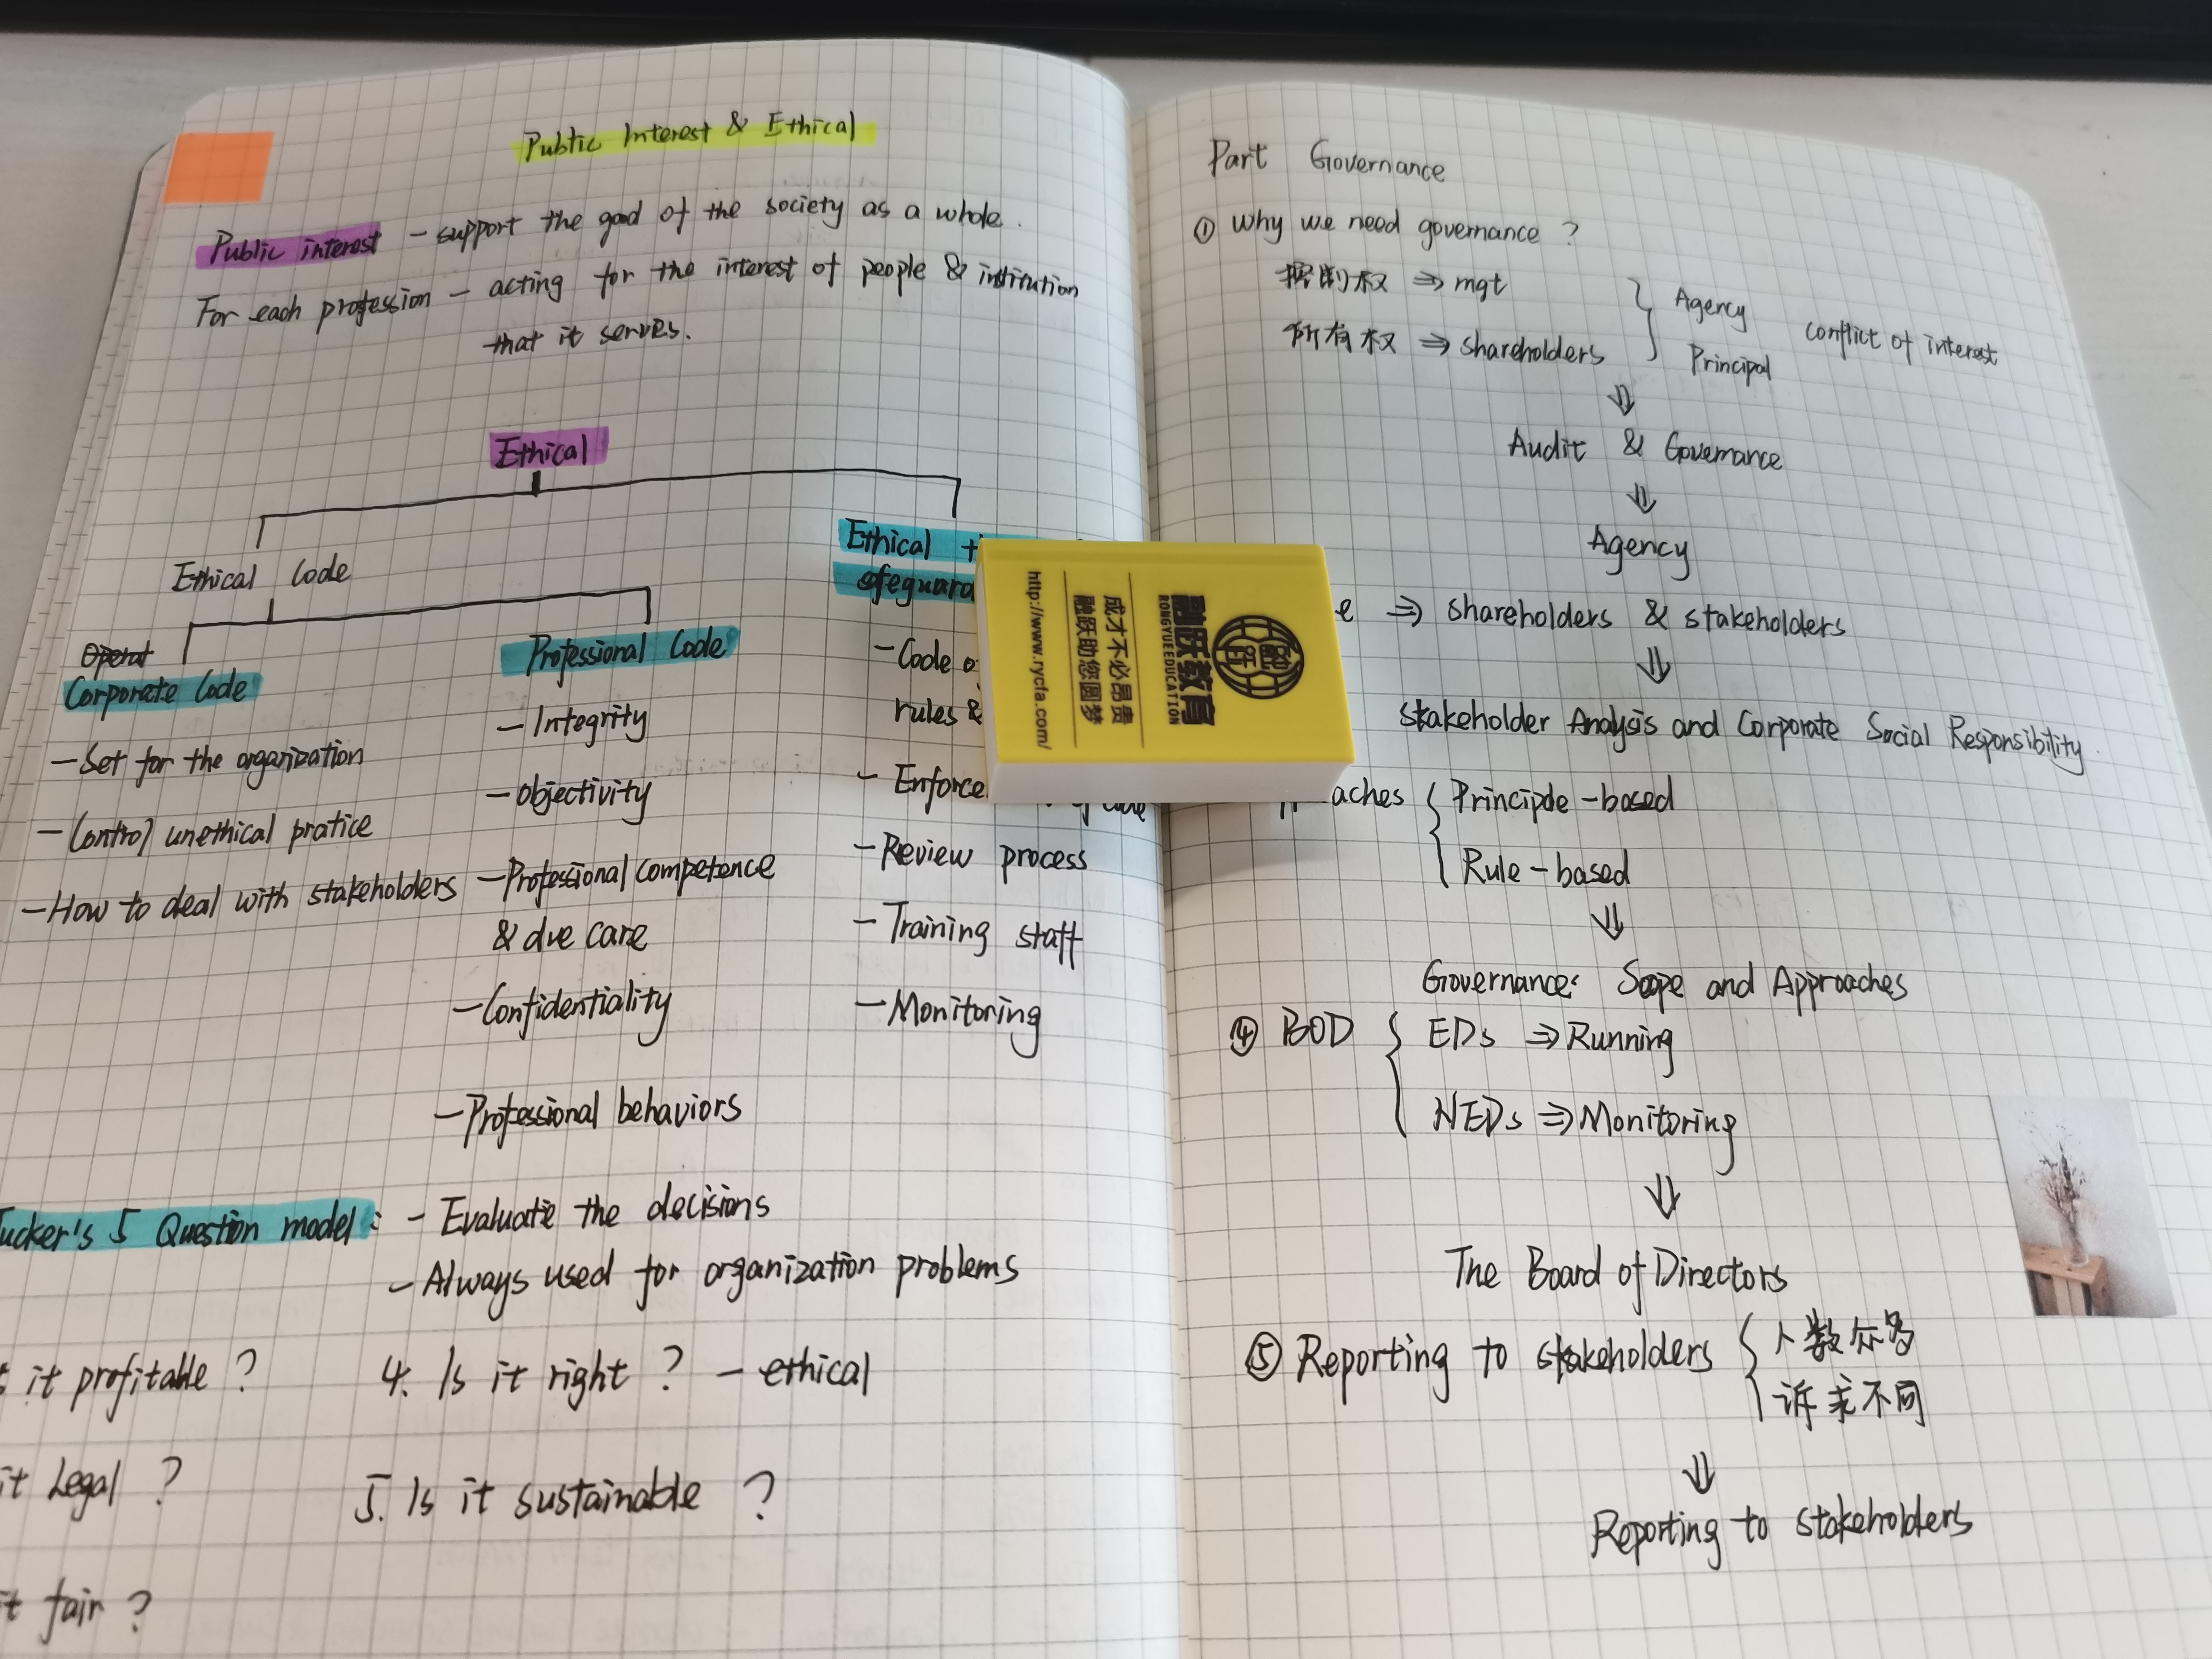 Public Interest & Ethical
Public interest – support the good of the society as a whole.
For each profession – acting for the interest of people & institution
that it serves.
Ethical
Ethical Code
Operat
Corporate Code
– Set for the organization
– Control unethical pratice
– How to deal with stakeholders
Professional Code
– Integrity
– Objectivity
– Professional competence
& due care
– Confidentiality
– Professional behaviors
Ethical
– Code
rules &
– Review process
– Training staff
– Monitoring
5 Question model: – Evaluate the decisions
– Always used for organization problems
it profitable ?
it Legal ?
it fair ?
4. Is it right ? – ethical
5. Is it sustainable ?
Part Governance
① Why we need governance ?
控制权 ⇒ mgt
所有权 ⇒ shareholders
Agency
Principal
conflict of interest
⇓
Audit & Governance
⇓
Agency
⇒ shareholders & stakeholders
⇓
Stakeholder Analysis and Corporate Social Responsibility.
{ Principle-based
Rule-based
⇓
Governance: Scope and Approaches
④ BOD { EDs ⇒ Running
NEDs ⇒ Monitoring
⇓
The Board of Directors
⑤ Reporting to stakeholders { 人数众多
诉求不同
⇓
Reporting to stakeholders
融跃教育
RONGYUEEDUCATION
成才不必昂贵
融跃助您圆梦
http://www.rycfa.com/